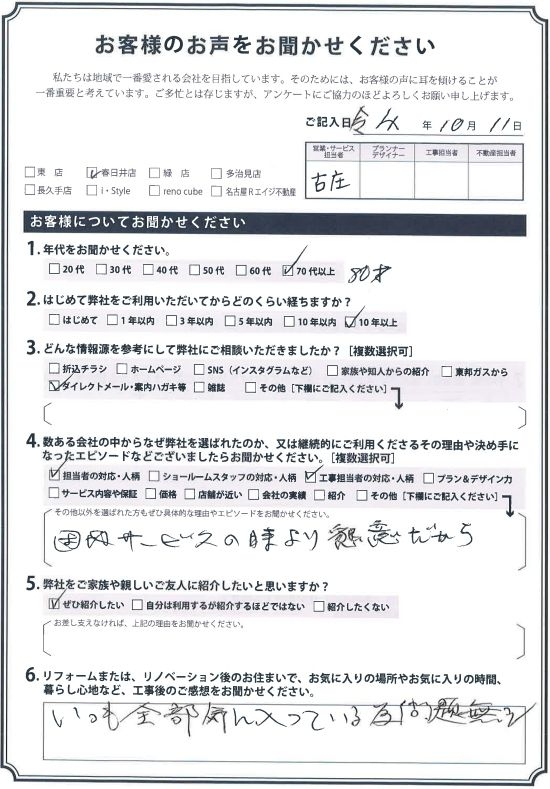 お客様のお声をお聞かせください
私たちは地域で一番愛される会社を目指しています。そのためには、お客様の声に耳を傾けることが
一番重要と考えています。ご多忙とは存じますが、アンケートにご協力のほどよろしくお願い申し上げます。
ご記入日 令 年 10 月 11 日
営業・サービス担当者 プランナーデザイナー 工事担当者 不動産担当者
古庄
□東 店 ☑春日井店 □緑 店 □多治見店
□長久手店 □i・Style □reno cube □名古屋Rエイジ不動産
お客様についてお聞かせください
1. 年代をお聞かせください。
□20代 □30代 □40代 □50代 □60代 ☑70代以上 80才
2. はじめて弊社をご利用いただいてからどのくらい経ちますか？
□はじめて □1年以内 □3年以内 □5年以内 □10年以内 ☑10年以上
3. どんな情報源を参考にして弊社にご相談いただきましたか？［複数選択可］
□折込チラシ □ホームページ □SNS（インスタグラムなど） □家族や知人からの紹介 □東邦ガスから
☑ダイレクトメール・案内ハガキ等 □雑誌 □その他［下欄にご記入ください］
4. 数ある会社の中からなぜ弊社を選ばれたのか、又は継続的にご利用くださるその理由や決め手に
なったエピソードなどございましたらお聞かせください。［複数選択可］
☑担当者の対応・人柄 □ショールームスタッフの対応・人柄 ☑工事担当者の対応・人柄 □プラン＆デザイン力
□サービス内容や保証 □価格 □店舗が近い □会社の実績 □紹介 □その他［下欄にご記入ください］
その他以外を選ばれた方もぜひ具体的な理由やエピソードをお聞かせください。
サービスの時より懇意だから
5. 弊社をご家族や親しいご友人に紹介したいと思いますか？
☑ぜひ紹介したい □自分は利用するが紹介するほどではない □紹介したくない
お差し支えなければ、上記の理由をお聞かせください。
6. リフォームまたは、リノベーション後のお住まいで、お気に入りの場所やお気に入りの時間、
暮らし心地など、工事後のご感想をお聞かせください。
いつも全部気に入っている為問題無し